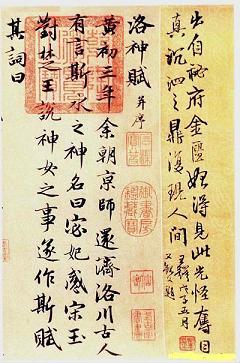 出自秘府金匱得見此光怪奪目
真沉泗之鼎復現人間 五月
洛神賦 并序
黃初三年余朝京師還濟洛川古人
有言斯水之神名曰宓妃感宋玉
對楚王說神女之事遂作斯賦
其詞曰